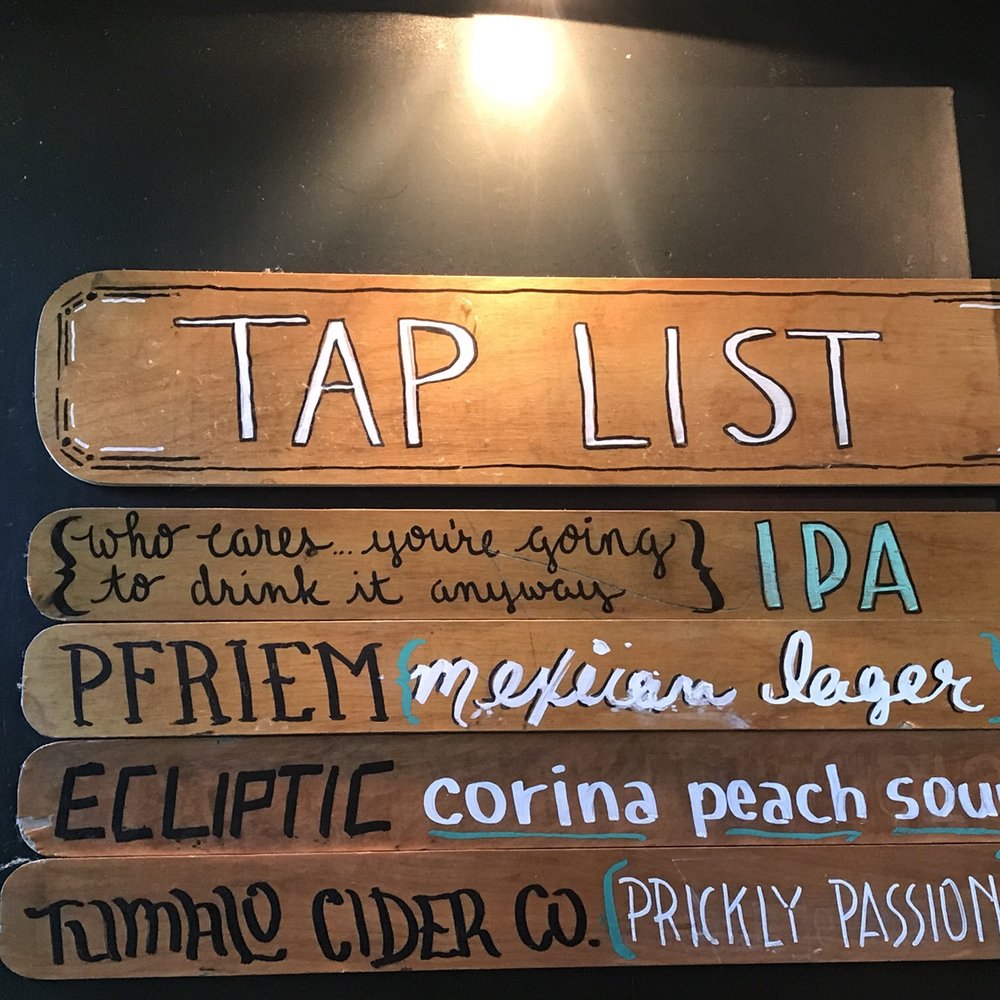 TAP LIST
{who cares... you're going
to drink it anyway} IPA
PFRIEM {mexican lager}
ECLIPTIC corina peach sou
TUMALO CIDER CO. {PRICKLY PASSION